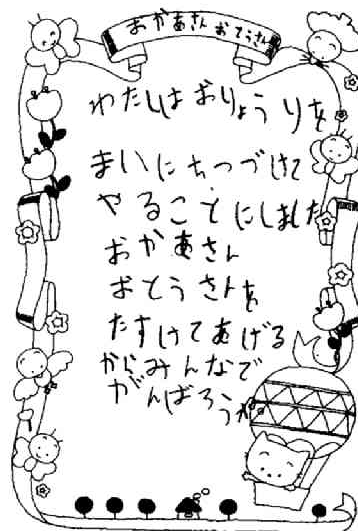 おかあさん おとうさん
わたしはおりょうりを
まいにちつづけて
やることにしました
おかあさん
おとうさんを
たすけてあげる
からみんなで
がんばろうね